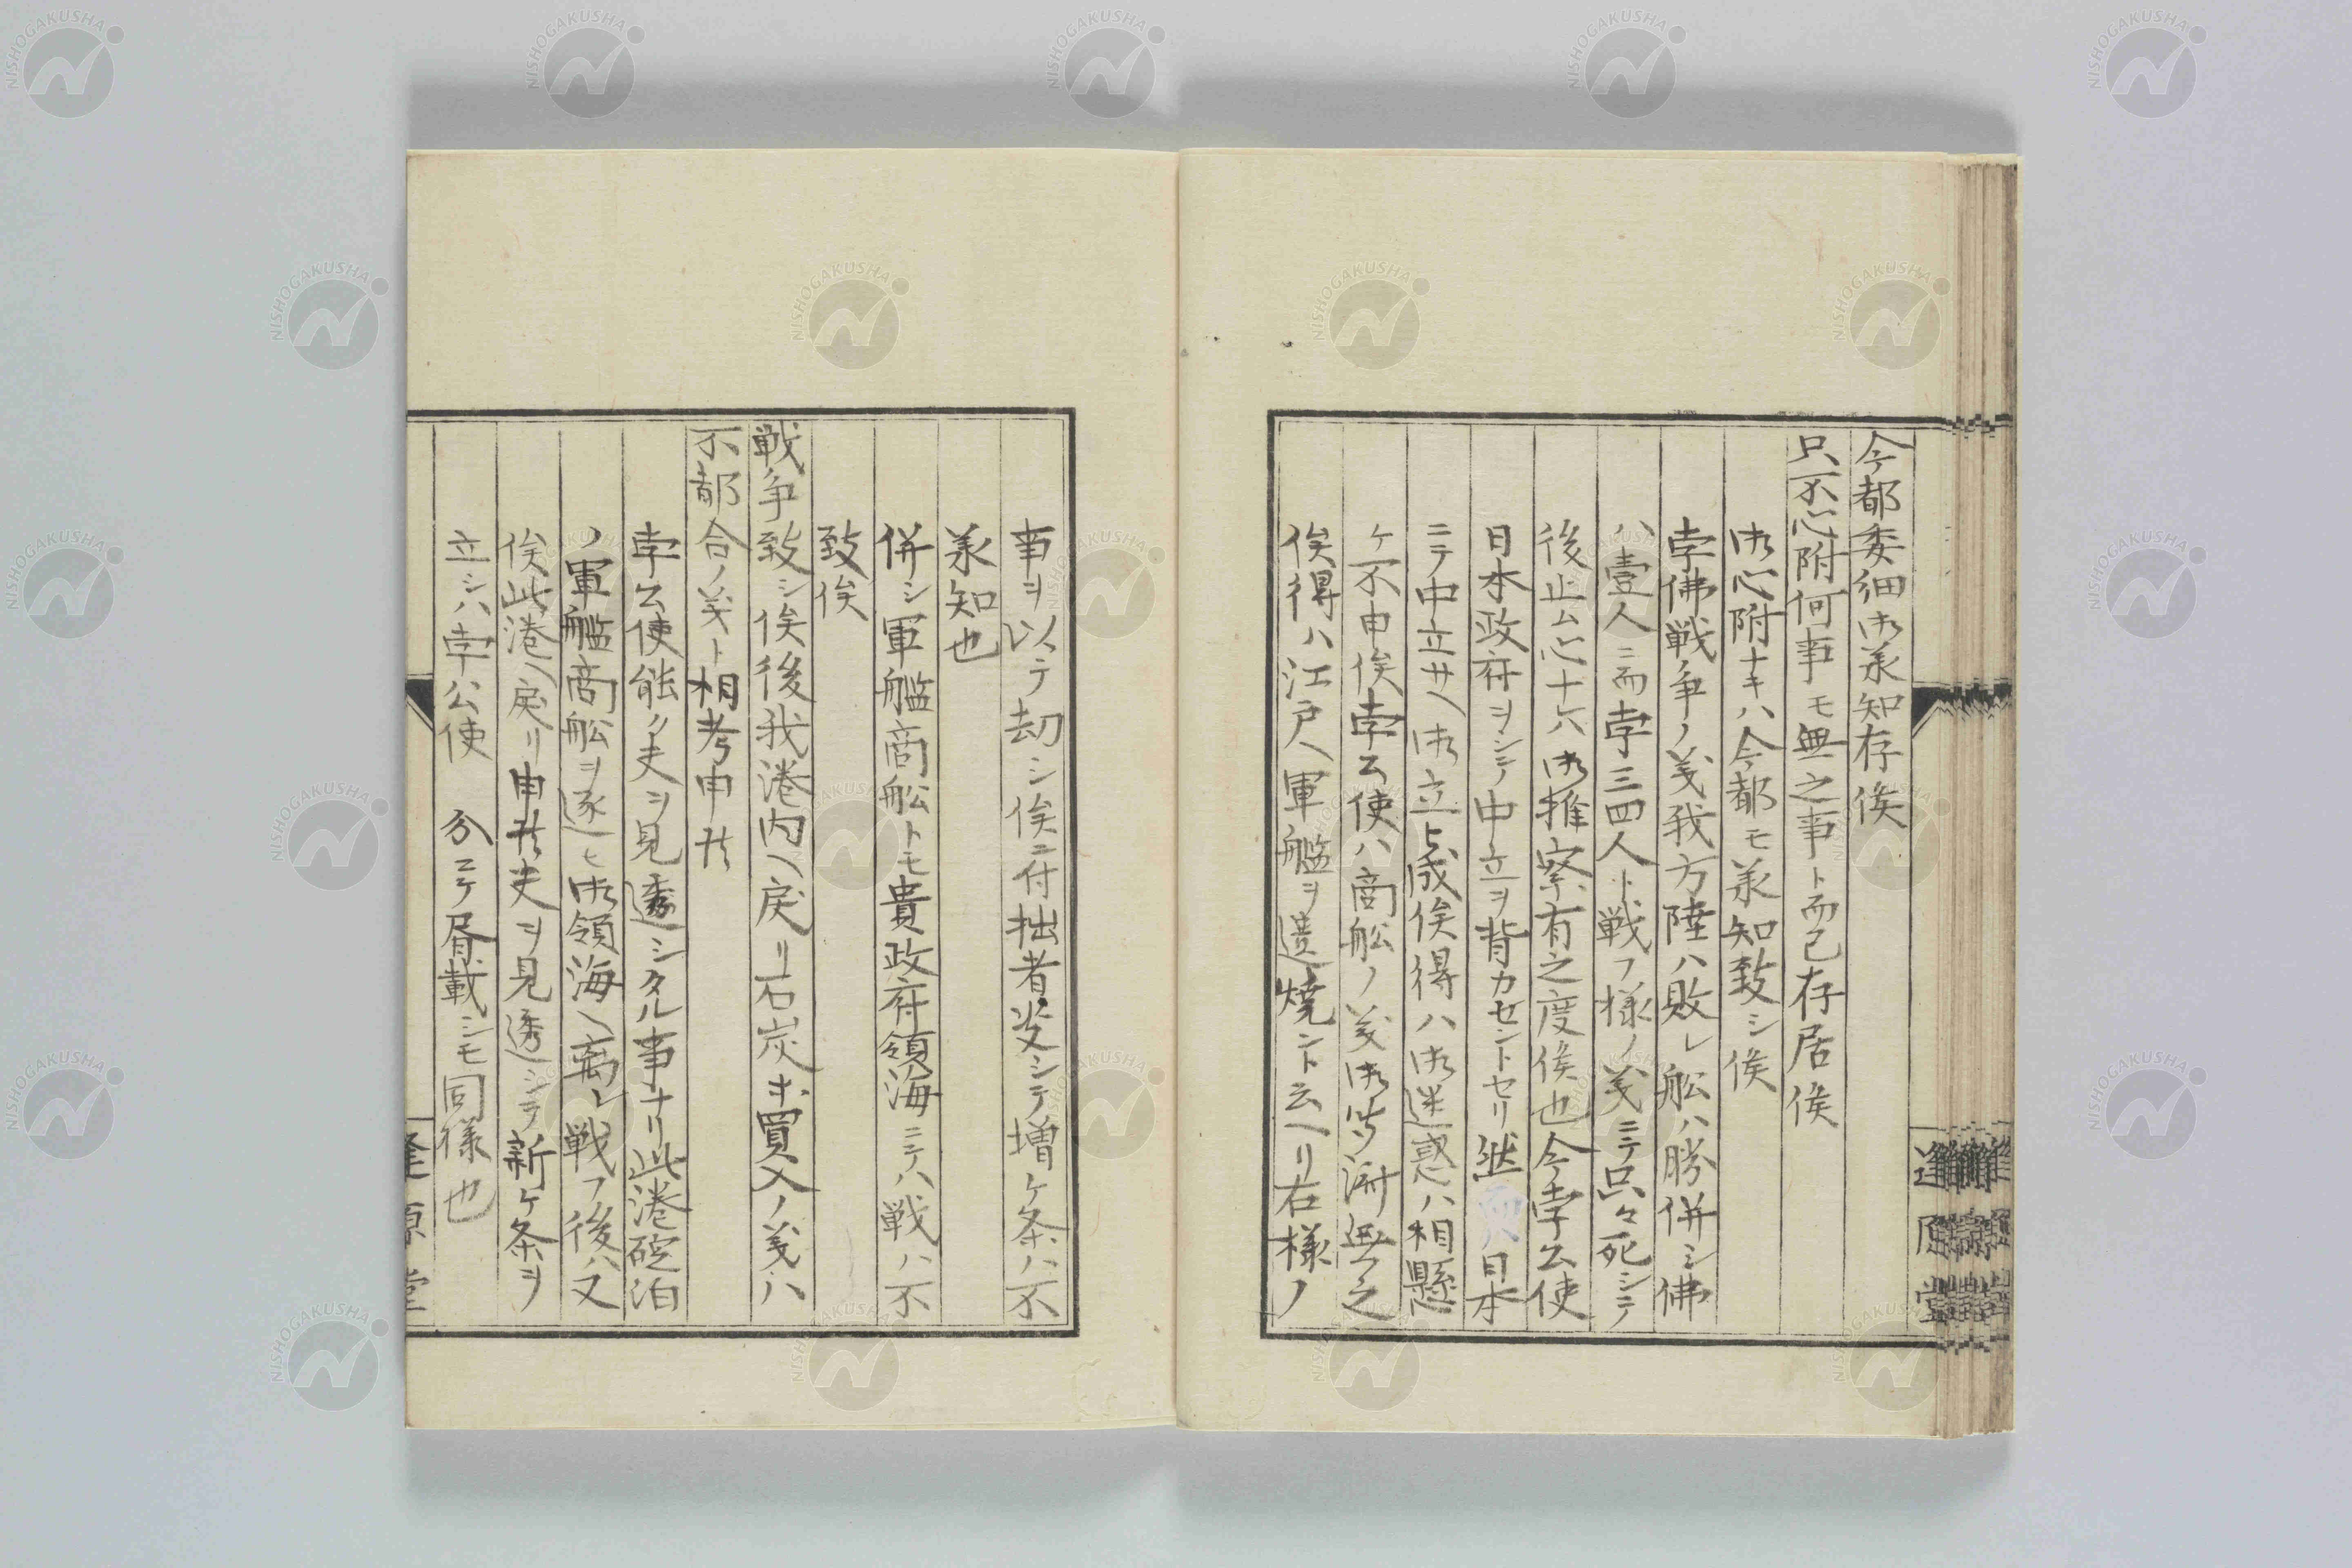 今都委細御承知存候
只不心附何事モ無之事ト而已存居候
御心附ナキハ今都モ承知致シ候
孛佛戦争ノ義我方陸ハ敗レ舩ハ勝併シ佛
ハ壹人ニ而孛三四人ト戦フ様ノ義ニテ只々死シテ
後止ム心十六御推察有之度候也今孛公使
日本政府ヲシテ中立ヲ背カセントセリ然 日本
ニテ中立サヘ御立ト成候得ハ御迷惑ハ相懸
ケ不申候孛公使ハ商舩ノ義御 無之
候得ハ江戸ヘ軍艦ヲ遣焼ント云ヘリ右様ノ
事ヲ以テ劫シ候ニ付拙者 シテ増ケ条ハ不
承知也
併シ軍艦商舩トモ貴政府領海ニテハ戦ハ不
致候
戦争致シ候後我港内ヘ戻リ石炭ホ買入ノ義ハ
不都合ノ義ト相考申候
孛公使能ク夫ヲ見透シタル事ナリ此港碇泊
ノ軍艦商舩ヲ逐ヒ御領海ヘ離レ戦フ後ハ又
候此港ヘ戻リ申候夫ヲ見透シテ新ケ条ヲ
立シハ孛公使 分ニテ 載シモ同様也
逢原堂
逢原堂
NISHOGAKUSHA